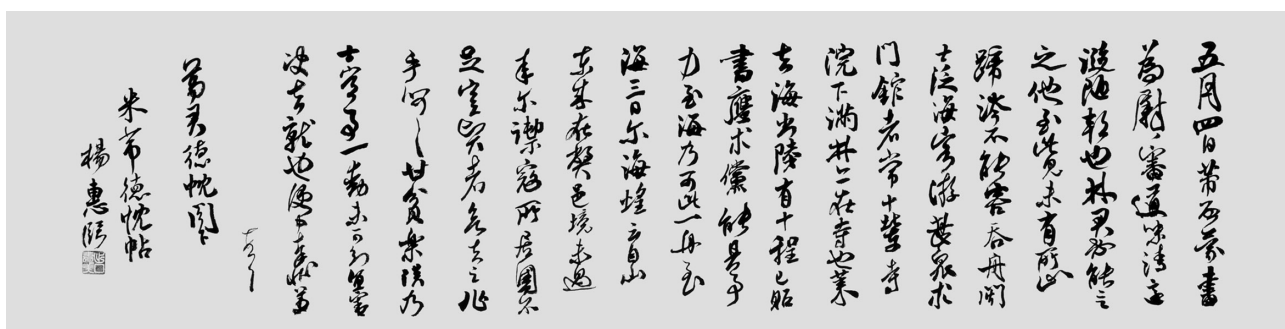 五月四日芾啓蒙書
為尉審道味清適
漣陋邦也林君必能言
之他至此見未有所止
蹄涔不能容吞舟閩
士泛海客游甚眾求
門館者常十輩寺
院下滿林亦在寺也萊
去海出陸有十程已貼
書應求儻能具事
力至海乃可此一舟至
海三日尔海蝗云自山
東来在弊邑境未過
来尔禦寇所居國不
足豈賢者欲去之兆
乎呵呵甘貧樂淡乃
士常事一動未可知宜審
决去就也便中奉狀芾
頓首
葛君德忱閣下
米芾德忱帖
楊惠臨